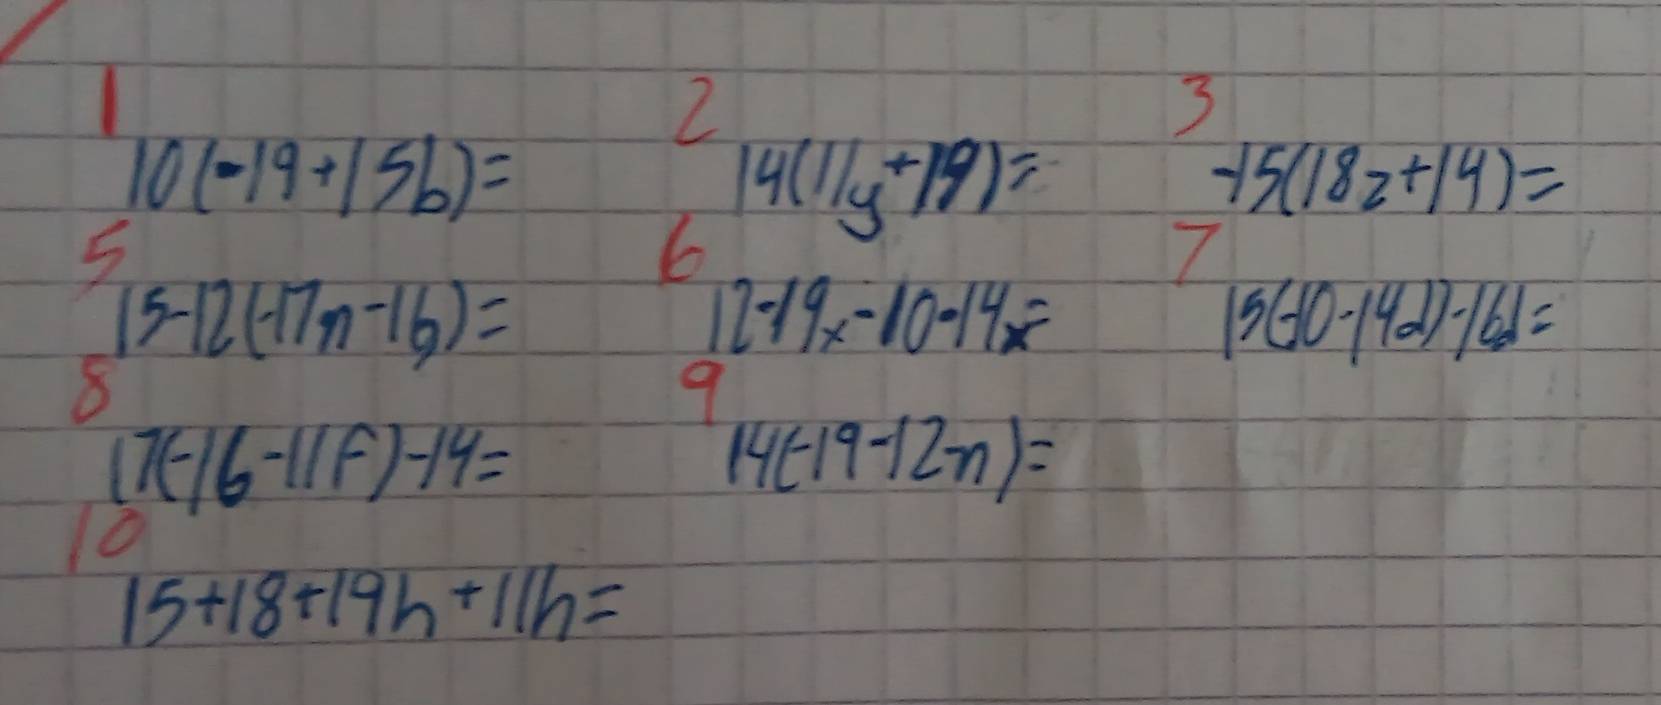 1 2 3
10(-19+15b)= 14(11y+19)= -15(18z+14)=
5 6 7
15-12(-17n-16)= 12-19x-10-14x= 15(-10-14d)-16d=
8 9
17(-16-11f)-14= 14(-19-12n)=
10
15+18+19h+11h=